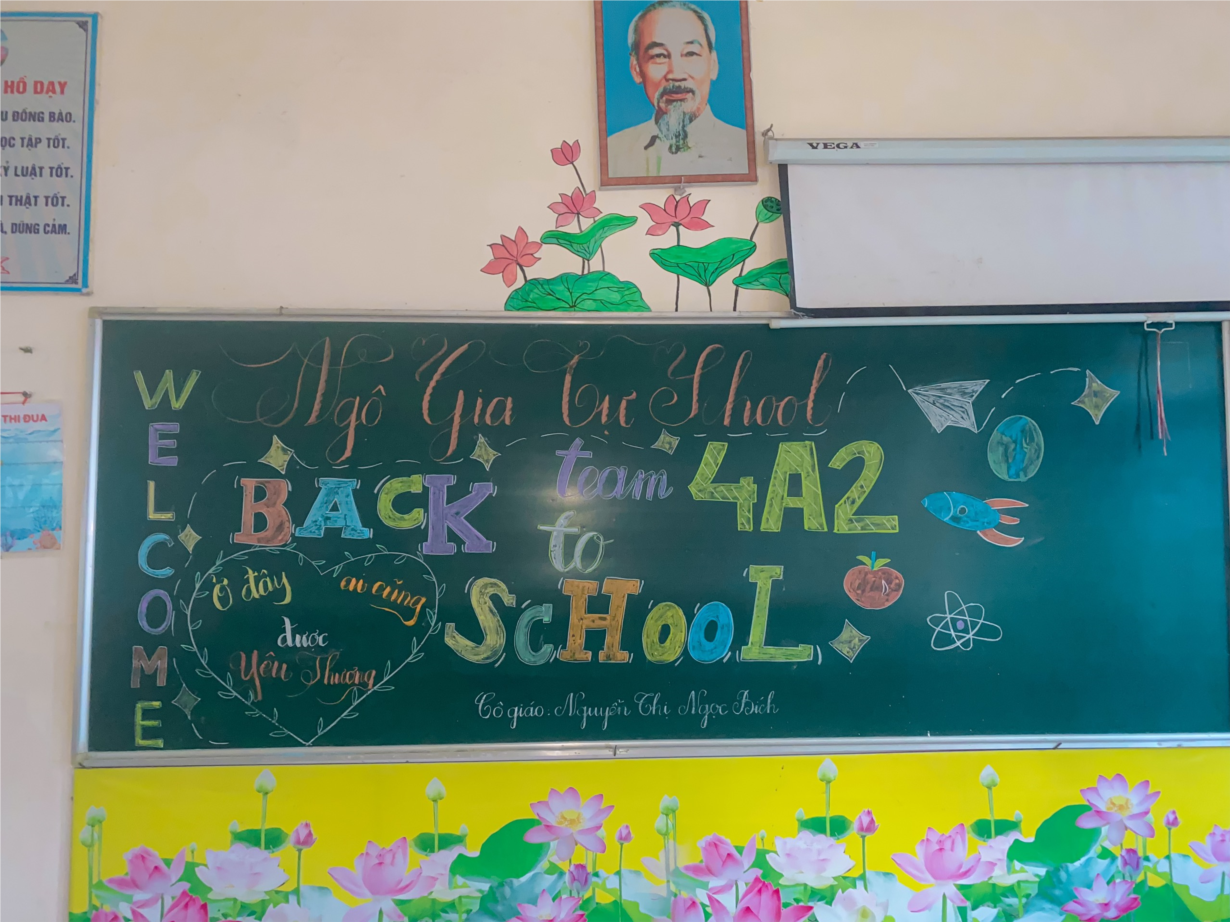 HỒ DẠY
U ĐỒNG BÀO.
ỌC TẬP TỐT.
KỶ LUẬT TỐT.
THẬT TỐT.
DŨNG CẢM.
THI ĐUA
VEGA
WELCOME
Ngô Gia Tự School
BACK
team 4A2
to
SCHOOL
Ở đây ai cũng
được
Yêu Thương
Cô giáo: Nguyễn Thị Ngọc Bích